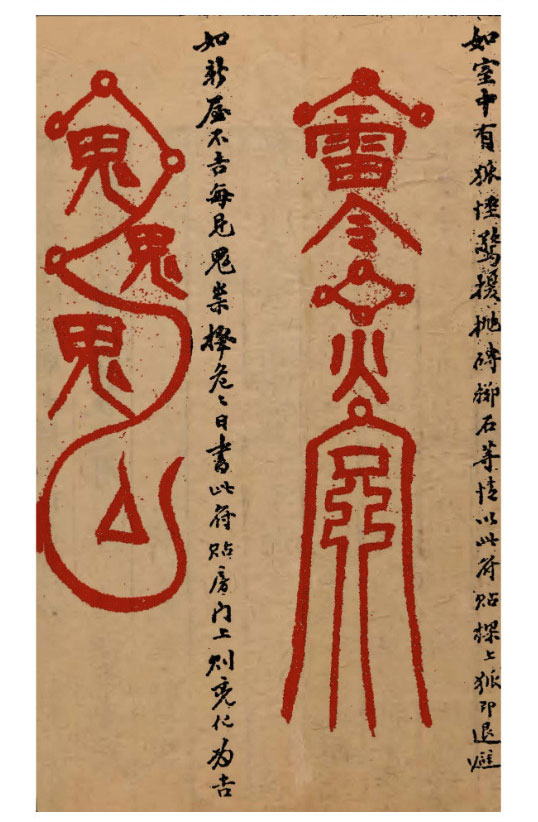 如室中有狐怪驚擾抛磚擲石等情以此符贴樑上狐即退避
雷令火
如新屋不吉每见鬼祟擇危〻日書此符贴房门上则兇化为吉
鬼鬼鬼山